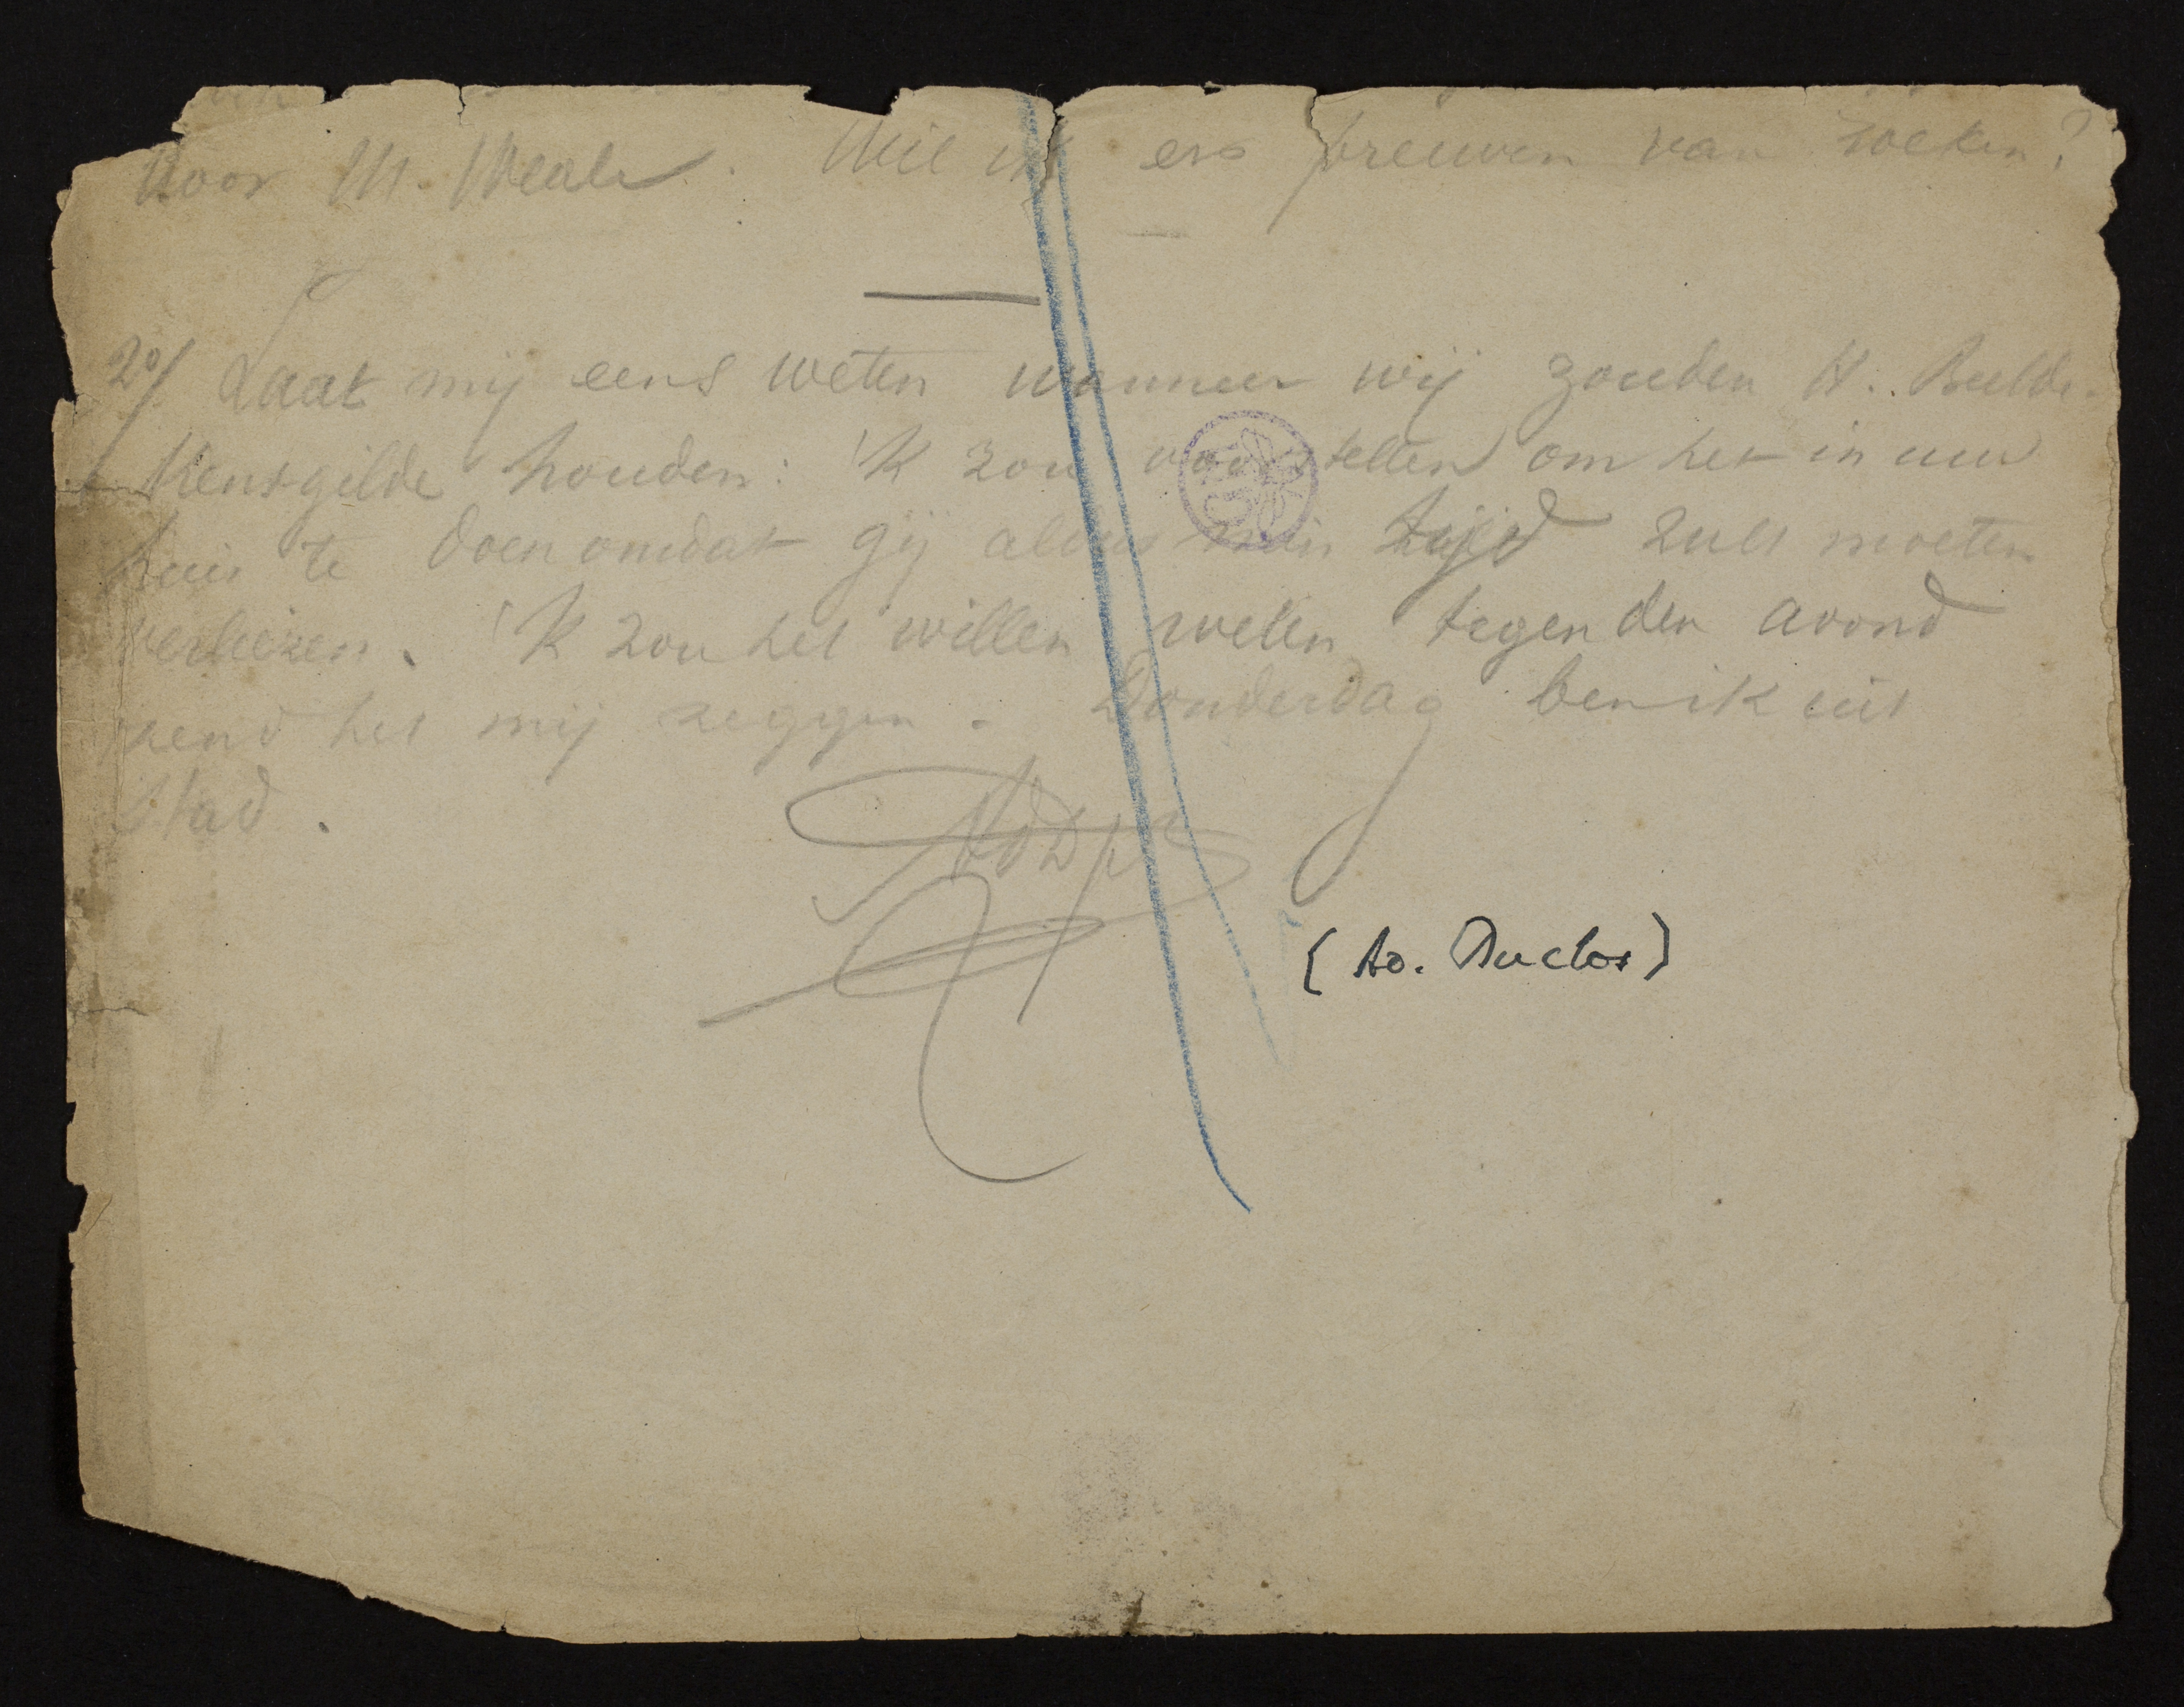 Voor M. Weale. Wil ik ers preuven van zoeken?
2°/ Laat mij eens weten wanneer wij zouden H. Beelde-
kensgilde houden: 'K zou voorstellen om het in uw
huis te doen omdat gij aldus min tijd zult moeten
verliezen. 'K zou het willen weten tegen den avond
zend het mij zeggen. Donderdag ben ik uit
Stad.
(Ad. Duclos)